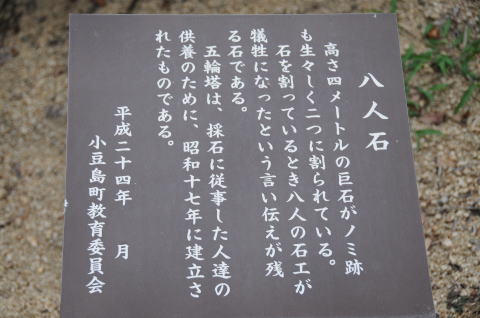 八人石
高さ四メートルの巨石がノミ跡
も生々しく二つに割られている。
石を割っているとき八人の石工が
犠牲になったという言い伝えが残
る石である。
五輪塔は、採石に従事した人達の
供養のために、昭和十七年に建立さ
れたものである。
平成二十四年　月
小豆島町教育委員会